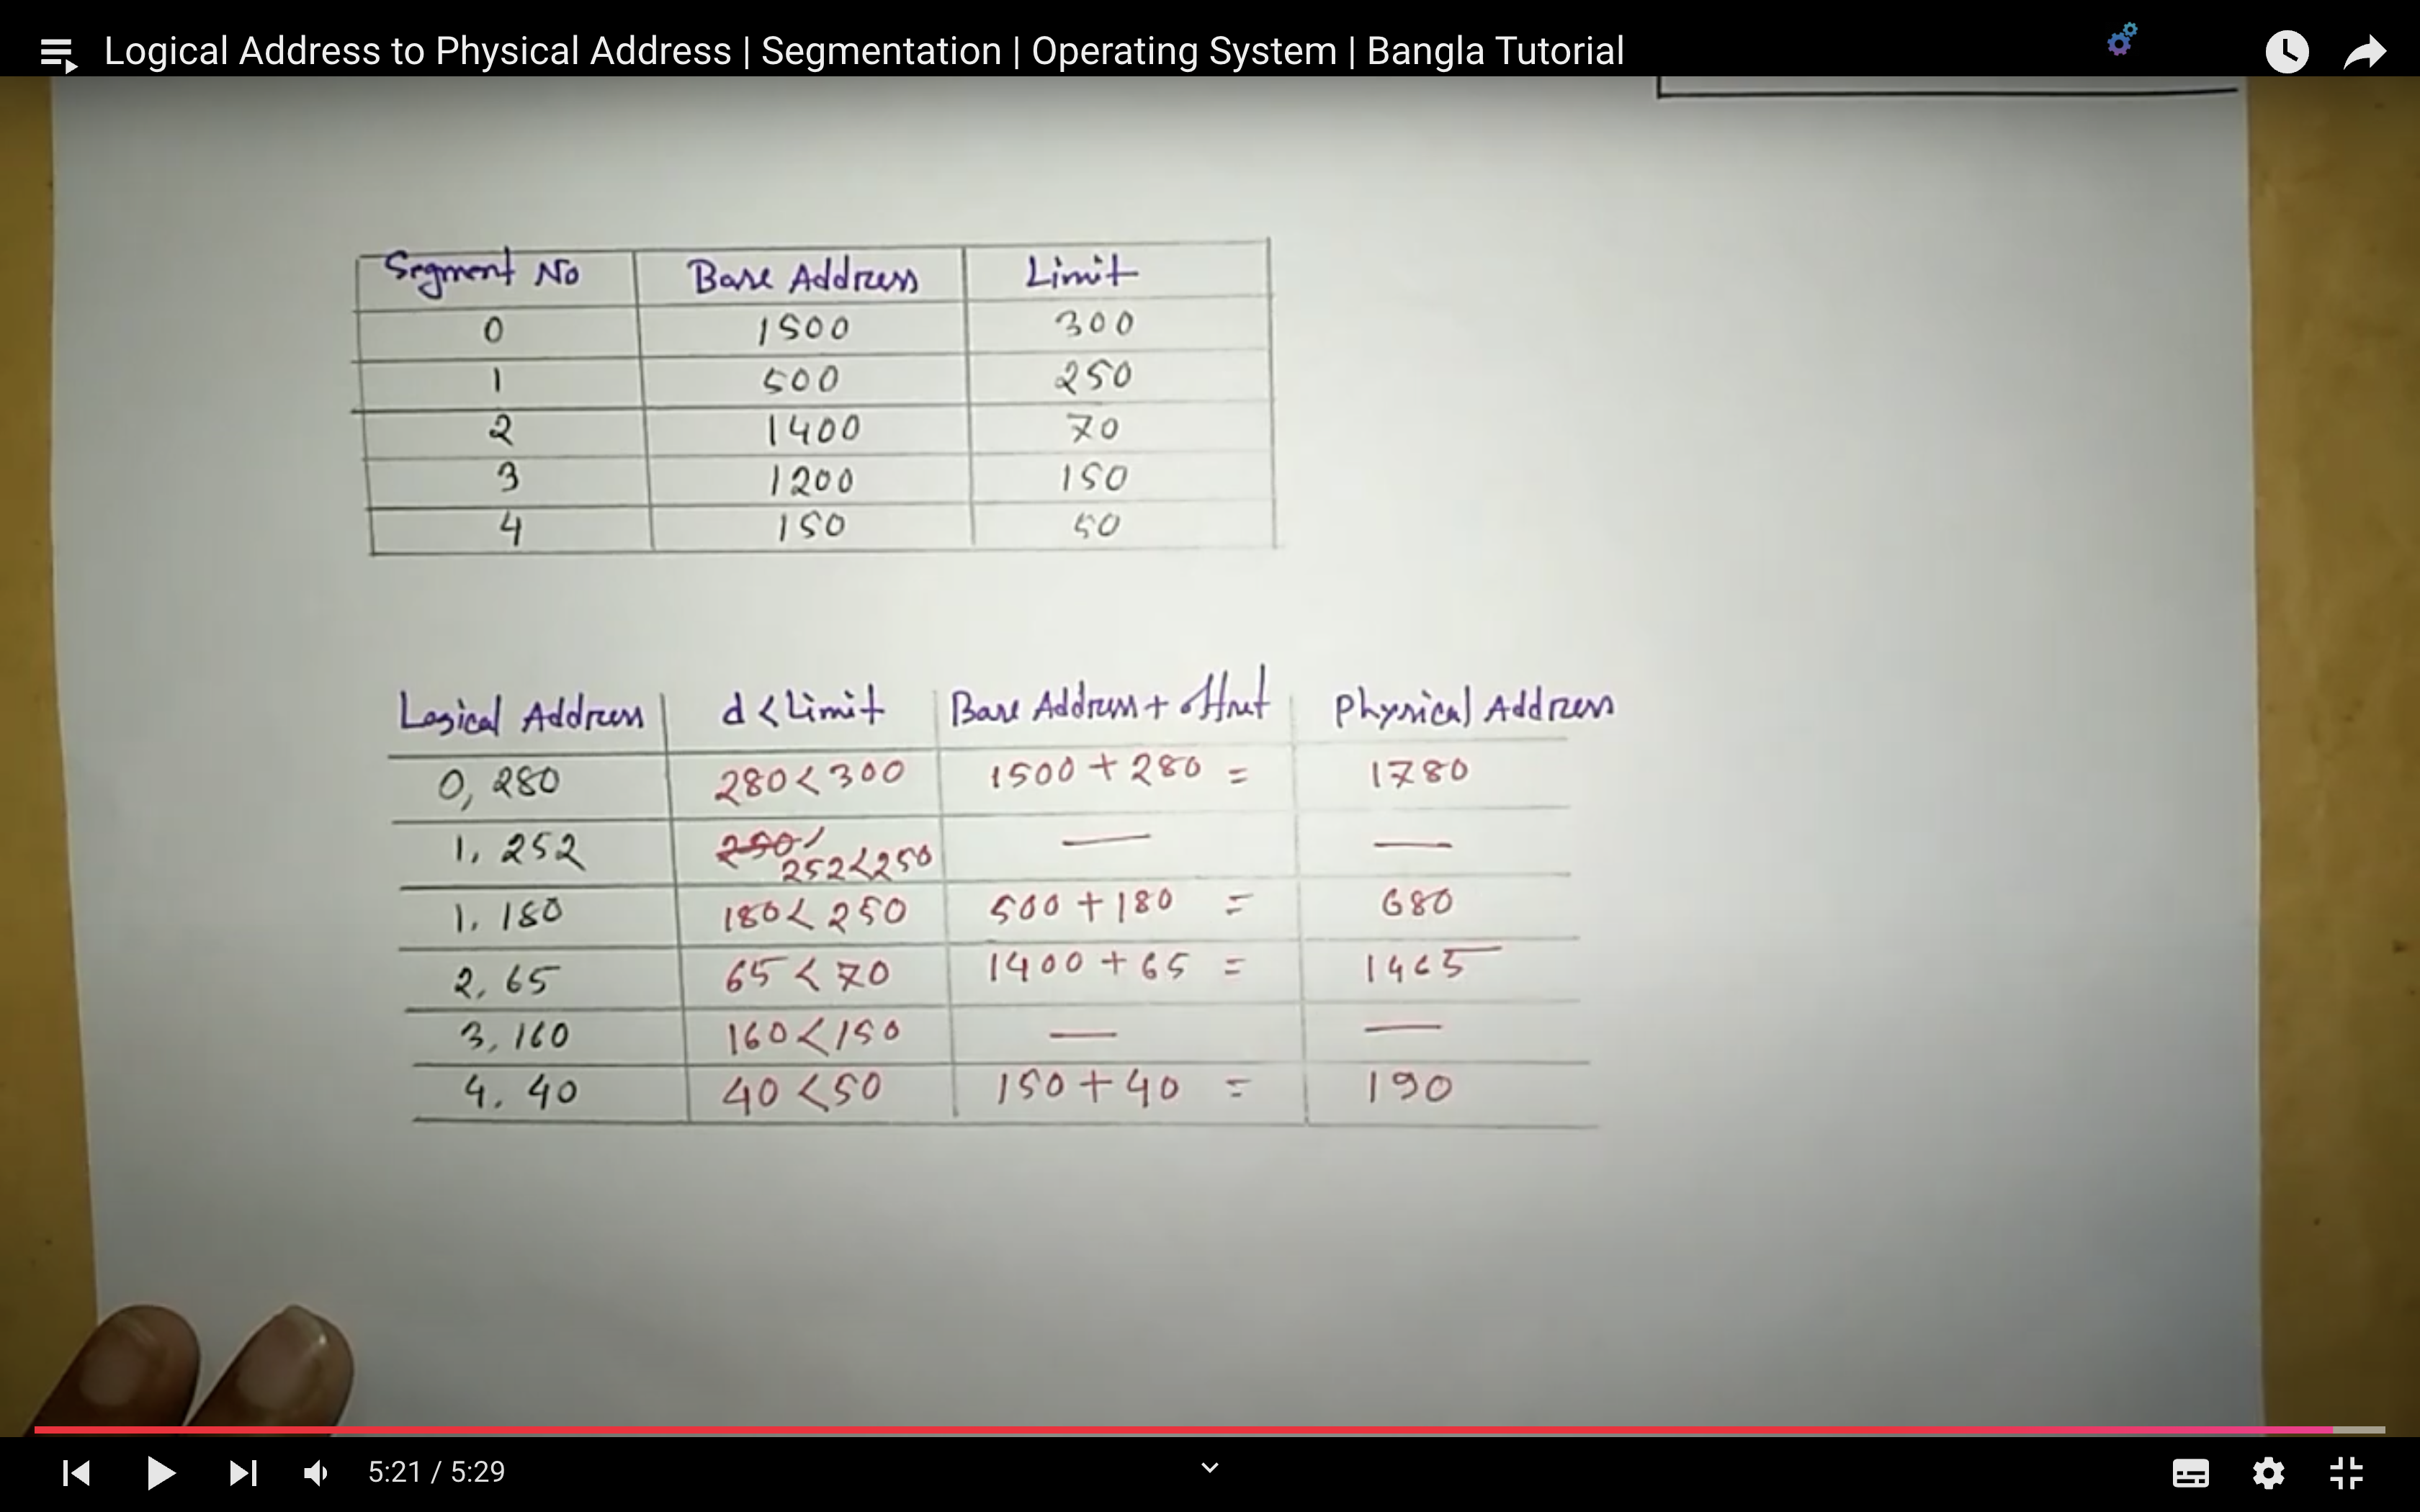 Logical Address to Physical Address | Segmentation | Operating System | Bangla Tutorial
Segment No Base Address Limit
0 1500 300
1 500 250
2 1400 70
3 1200 150
4 150 50
Logical Address d < Limit Base Address + offset Physical Address
0, 280 280 < 300 1500 + 280 = 1780
1, 252 250 252 < 250 — —
1, 180 180 < 250 500 + 180 = 680
2, 65 65 < 70 1400 + 65 = 1465
3, 160 160 < 150 — —
4, 40 40 < 50 150 + 40 = 190
5:21 / 5:29